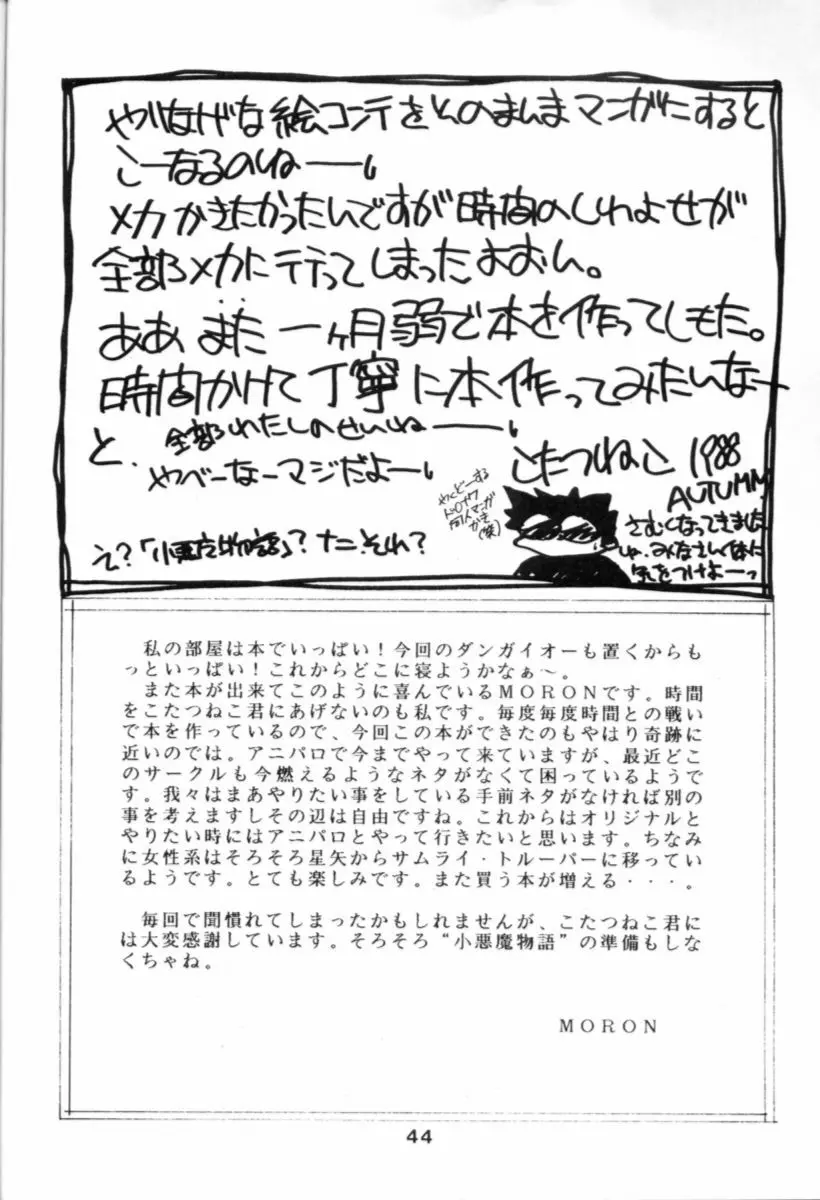 やりなげな絵コンテをそのまんまマンガにすると
こーなるのねー。
メカかきたかったんですが時間のしわよせが
全部メカに行ってしまったよおん。
ああ また 一ヶ月弱で本を作ってしもた。
時間かけて丁寧に本作ってみたいなー
と、全部わたしのせいねー。
やべーなーマジだよー。
こたつねこ 1988
AUTUMN
さむくなってきました
みなさん体に
気をつけよーっ
え?「小悪魔物語」? ナニそれ?
私の部屋は本でいっぱい!今回のダンガイオーも置くからも
っといっぱい!これからどこに寝ようかなぁ～。
また本が出来てこのように喜んでいるMORONです。時間
をこたつねこ君にあげないのも私です。毎度毎度時間との戦い
で本を作っているので、今回この本ができたのもやはり奇跡に
近いのでは。アニパロで今までやって来ていますが、最近どこ
のサークルも今燃えるようなネタがなくて困っているようで
す。我々はまあやりたい事をしている手前ネタがなければ別の
事を考えますしその辺は自由ですね。これからはオリジナルと
やりたい時にはアニパロとやって行きたいと思います。ちなみ
に女性系はそろそろ星矢からサムライ・トルーパーに移ってい
るようです。とても楽しみです。また買う本が増える・・・。
毎回で聞慣れてしまったかもしれませんが、こたつねこ君に
は大変感謝しています。そろそろ“小悪魔物語”の準備もしな
くちゃね。
MORON
44